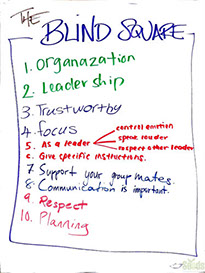 THE
BLIND SQUARE
1. Organazation
2. Leader ship
3. Trustworthy
4. focus
5. As a leader
control emotion
speak louder
respect other leader
6. Give specific instructions.
7. Support your group mates.
8. Communication is important.
9. Respect
10. Planning